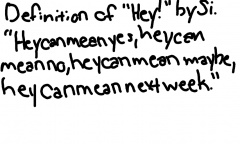 Definition of "Hey!" by Si.
"Hey can mean yes, hey can
mean no, hey can mean maybe,
hey can mean next week."